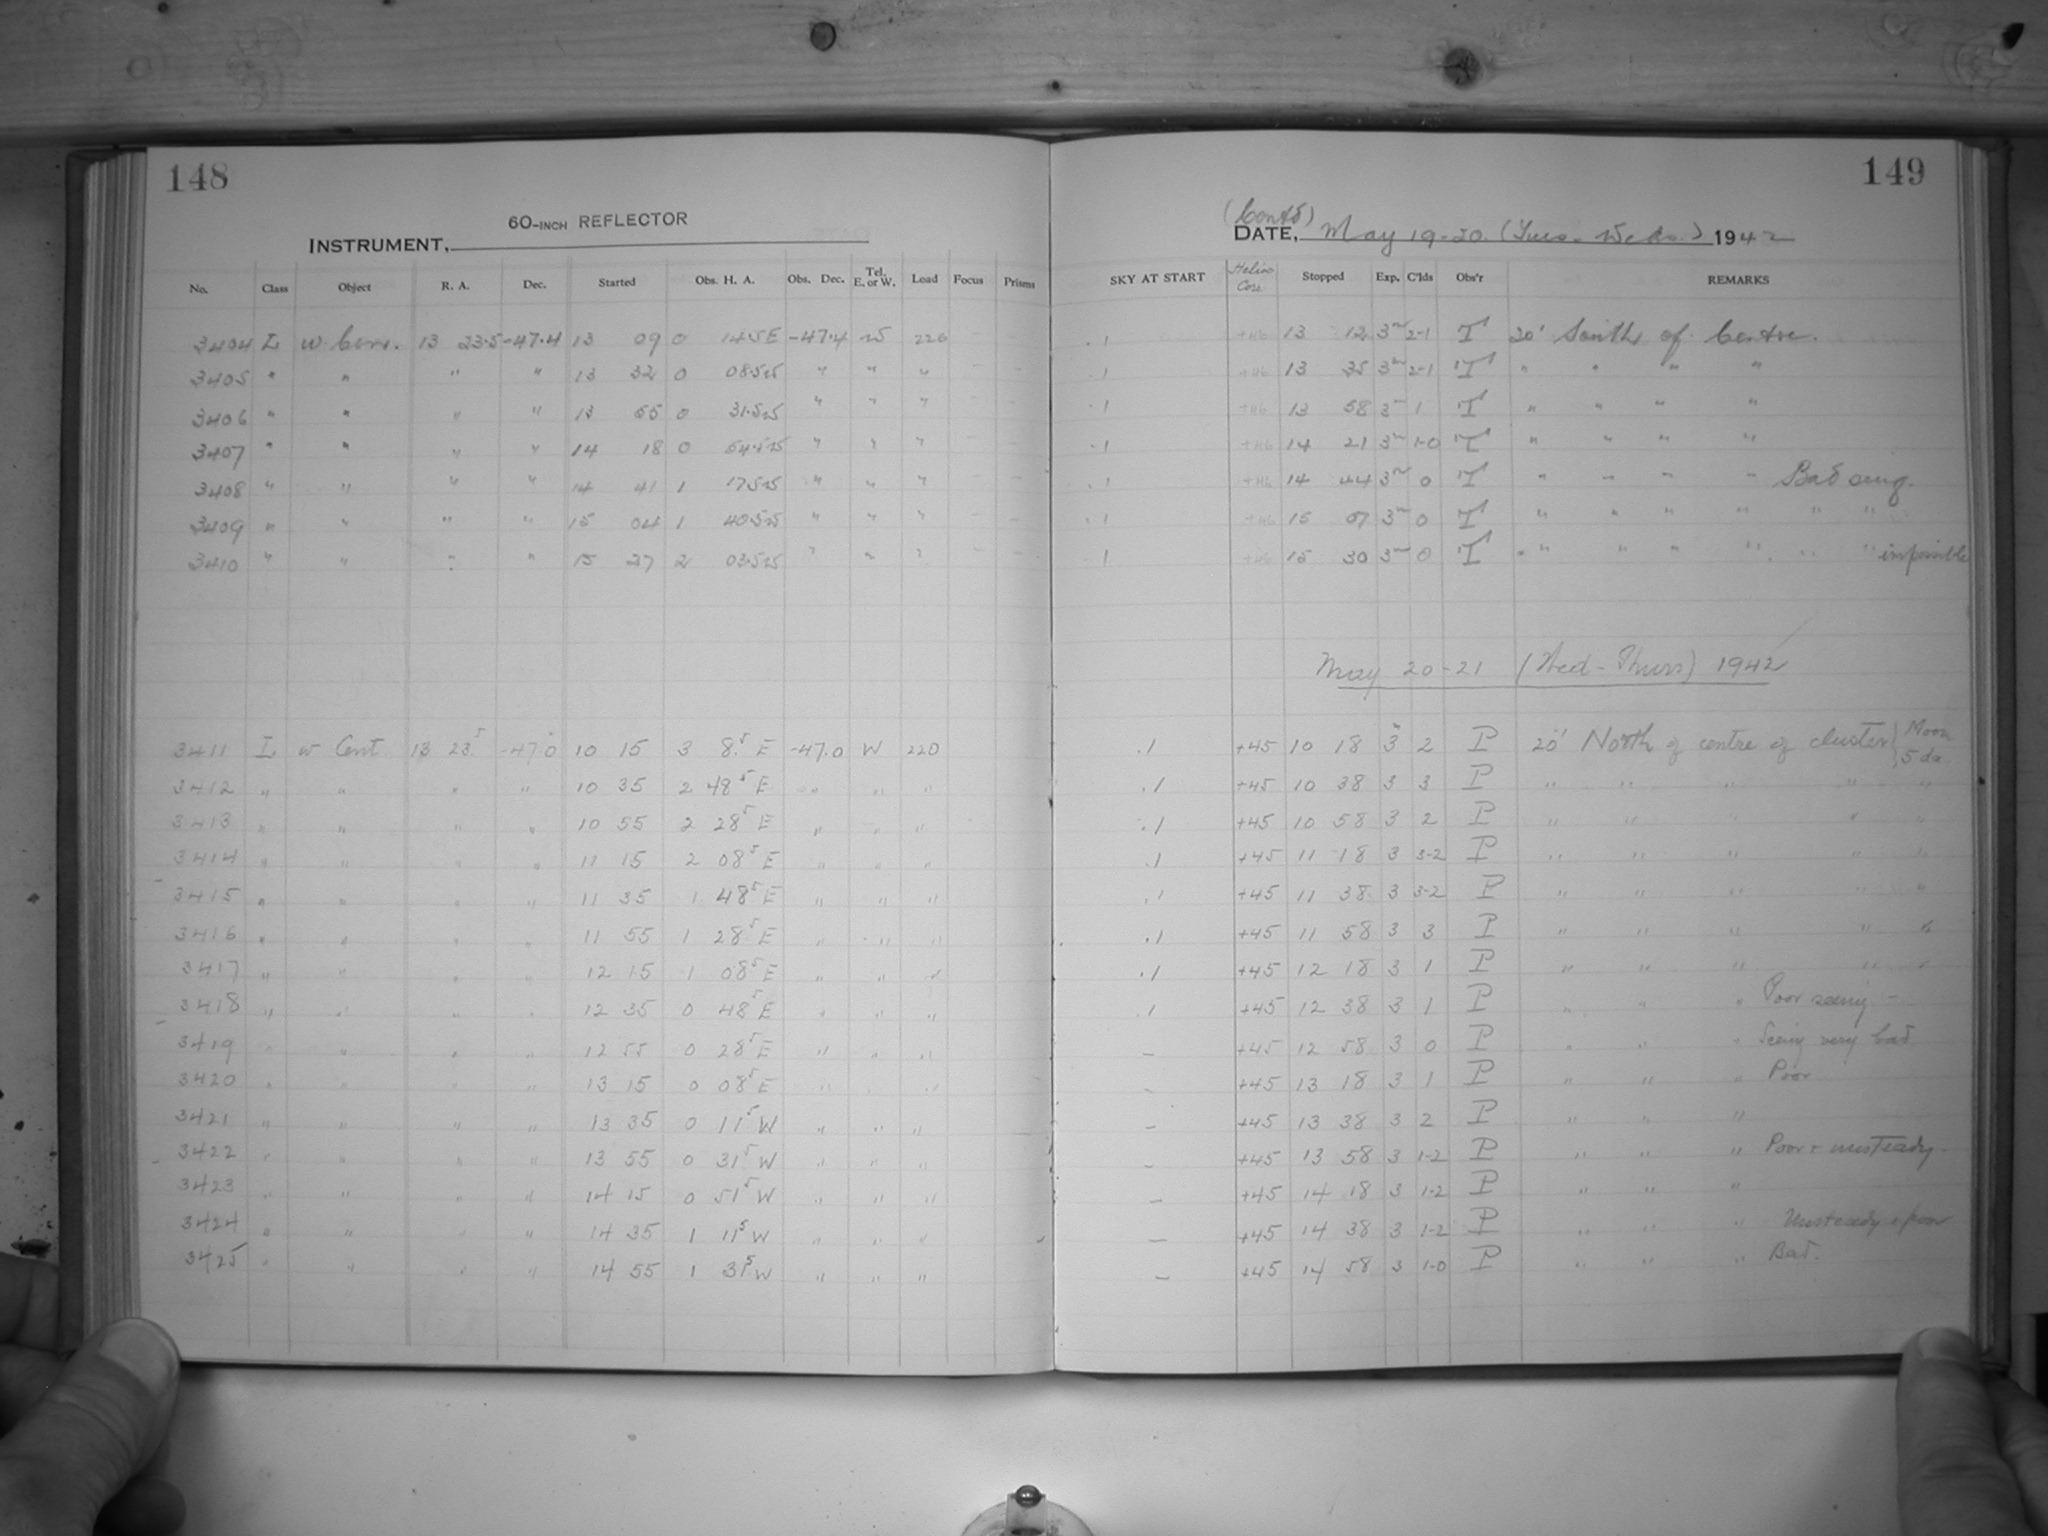 148
149
60-INCH REFLECTOR
INSTRUMENT,
(Contd)
DATE, May 19-20. (Tues - Weds.) 1942
No. Class Object R. A. Dec. Started Obs. H. A. Obs. Dec. Tel. E. or W. Load Focus Prisms SKY AT START Helio Corr. Stopped Exp. C'lds Obs'r REMARKS
3404 L w Cen. 13 23.5 -47.4 13 09 0 14.5 E -47.4 W 220 .1 +46 13 12 3m 2-1 T 20' South of Centre.
3405 " " " " 13 32 0 08.5 W " " " .1 +46 13 35 3m 2-1 T " " " "
3406 " " " " 13 55 0 31.5 W " " " .1 +46 13 58 3m 1 T " " " "
3407 " " " " 14 18 0 54.5 W " " " .1 +46 14 21 3m 1-0 T " " " "
3408 " " " " 14 41 1 17.5 W " " " .1 +46 14 44 3m 0 T " " " " Bad
3409 " " " " 15 04 1 40.5 W " " " .1 +46 15 07 3m 0 T " " " " " "
3410 " " " " 15 27 2 03.5 W " " " .1 +46 15 30 3m 0 T " " " " " " impossible
May 20-21 (Wed - Thurs) 1942
3411 L w Cent 13 23.5 -47.0 10 15 3 8.5 E -47.0 W 220 .1 +45 10 18 3m 2 P 20' North of centre of cluster } Moon 5 da
3412 " " " " 10 35 2 48.5 E " " " .1 +45 10 38 3 3 P " " " " "
3413 " " " " 10 55 2 28.5 E " " " .1 +45 10 58 3 2 P " " " " "
3414 " " " " 11 15 2 08.5 E " " " .1 +45 11 18 3 3-2 P " " " " "
3415 " " " " 11 35 1 48.5 E " " " .1 +45 11 38 3 3-2 P " " " " "
3416 " " " " 11 55 1 28.5 E " " " .1 +45 11 58 3 3 P " " " " "
3417 " " " " 12 15 1 08.5 E " " " .1 +45 12 18 3 1 P " " " " "
3418 " " " " 12 35 0 48.5 E " " " .1 +45 12 38 3 1 P " " " Poor seeing -
3419 " " " " 12 55 0 28.5 E " " " - +45 12 58 3 0 P " " " Seeing very bad
3420 " " " " 13 15 0 08.5 E " " " - +45 13 18 3 1 P " " " Poor
3421 " " " " 13 35 0 11.5 W " " " - +45 13 38 3 2 P " " "
3422 " " " " 13 55 0 31.5 W " " " - +45 13 58 3 1-2 P " " " Poor + unsteady -
3423 " " " " 14 15 0 51.5 W " " " - +45 14 18 3 1-2 P " " "
3424 " " " " 14 35 1 11.5 W " " " - +45 14 38 3 1-2 P " " " Unsteady + poor
3425 " " " " 14 55 1 31.5 W " " " - +45 14 58 3 1-0 P " " " Bad.